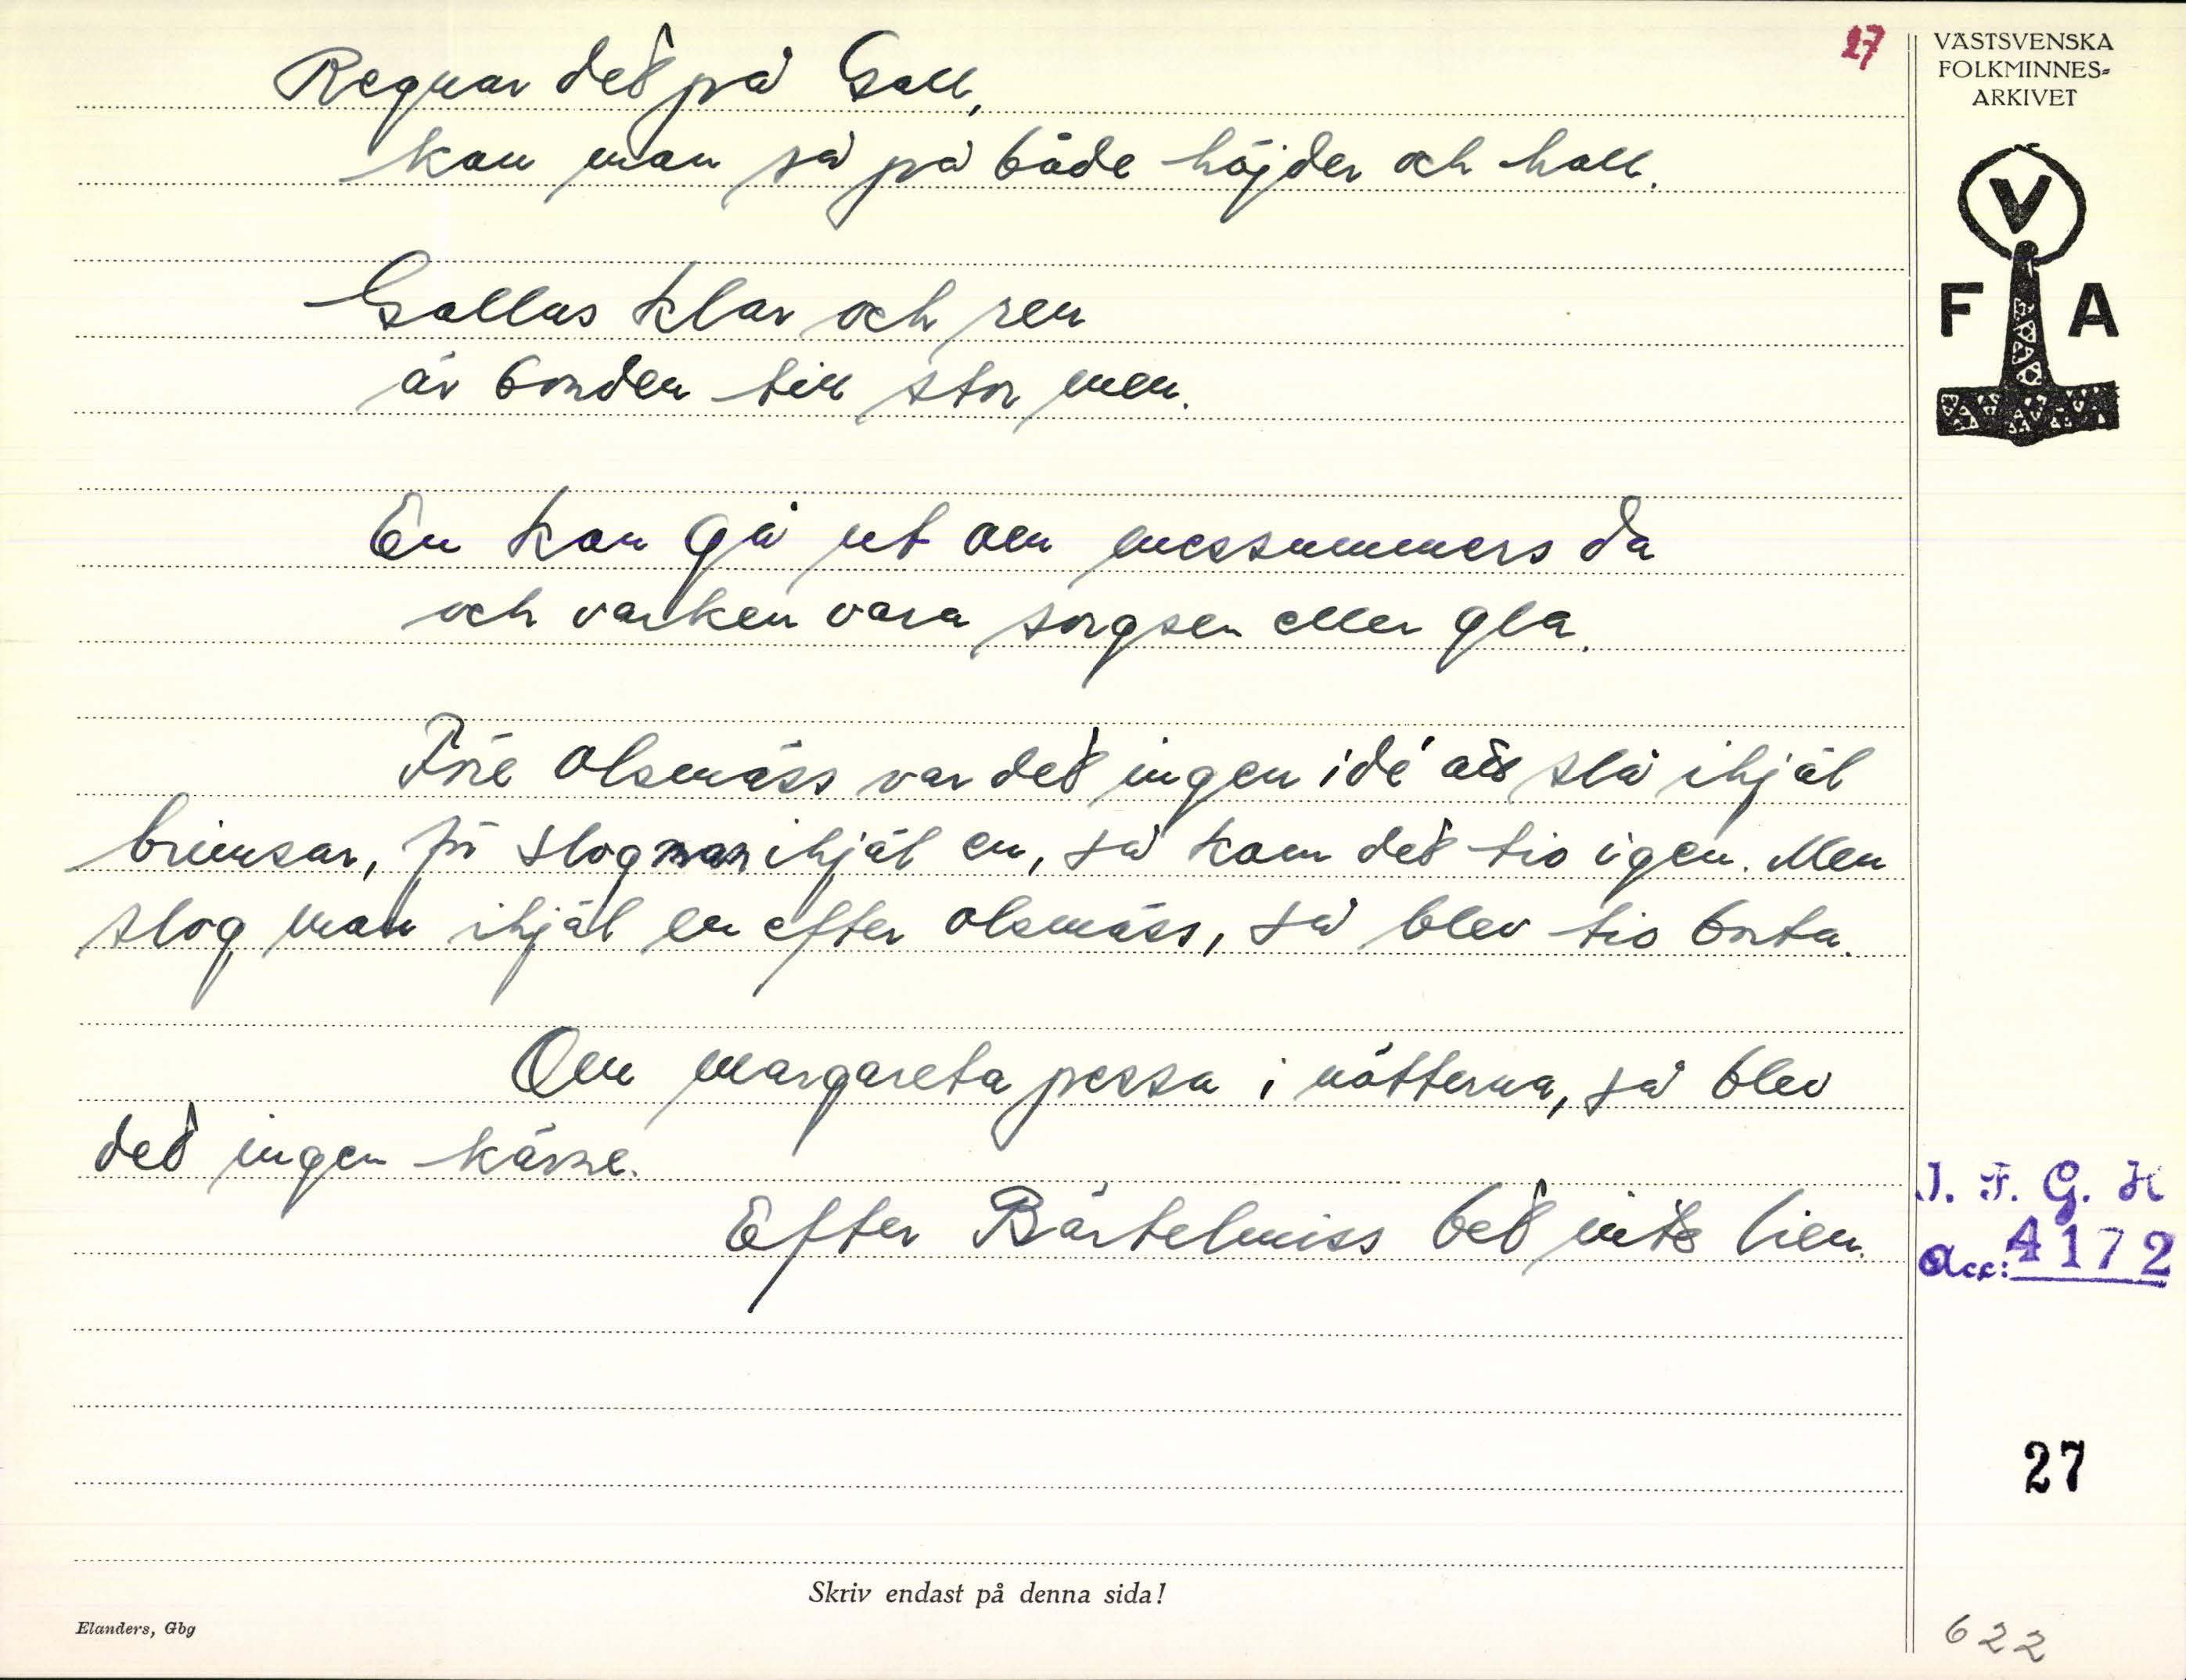 27
VÄSTSVENSKA
FOLKMINNES-
ARKIVET
V
F A
Regnar det på Gall,
kan man så på både höjder och hall.
Gallus klar och ren
är bonden till stor men.
En kan gå ut om messummers da
och varken vara sorgsen eller gla.
Före Olsmäss var det ingen idé att slå ihjäl
brimsar, för slog man ihjäl en, så kom det tio igen. Men
slog man ihjäl en efter olsmäss, så blev tio borta.
Om margareta pessa i nötterna, så blev
det ingen kärne.
Efter Bärtelmiss bet inte lien.
I. F. G. H
Acc: 4172
27
Skriv endast på denna sida!
Elanders, Gbg
622